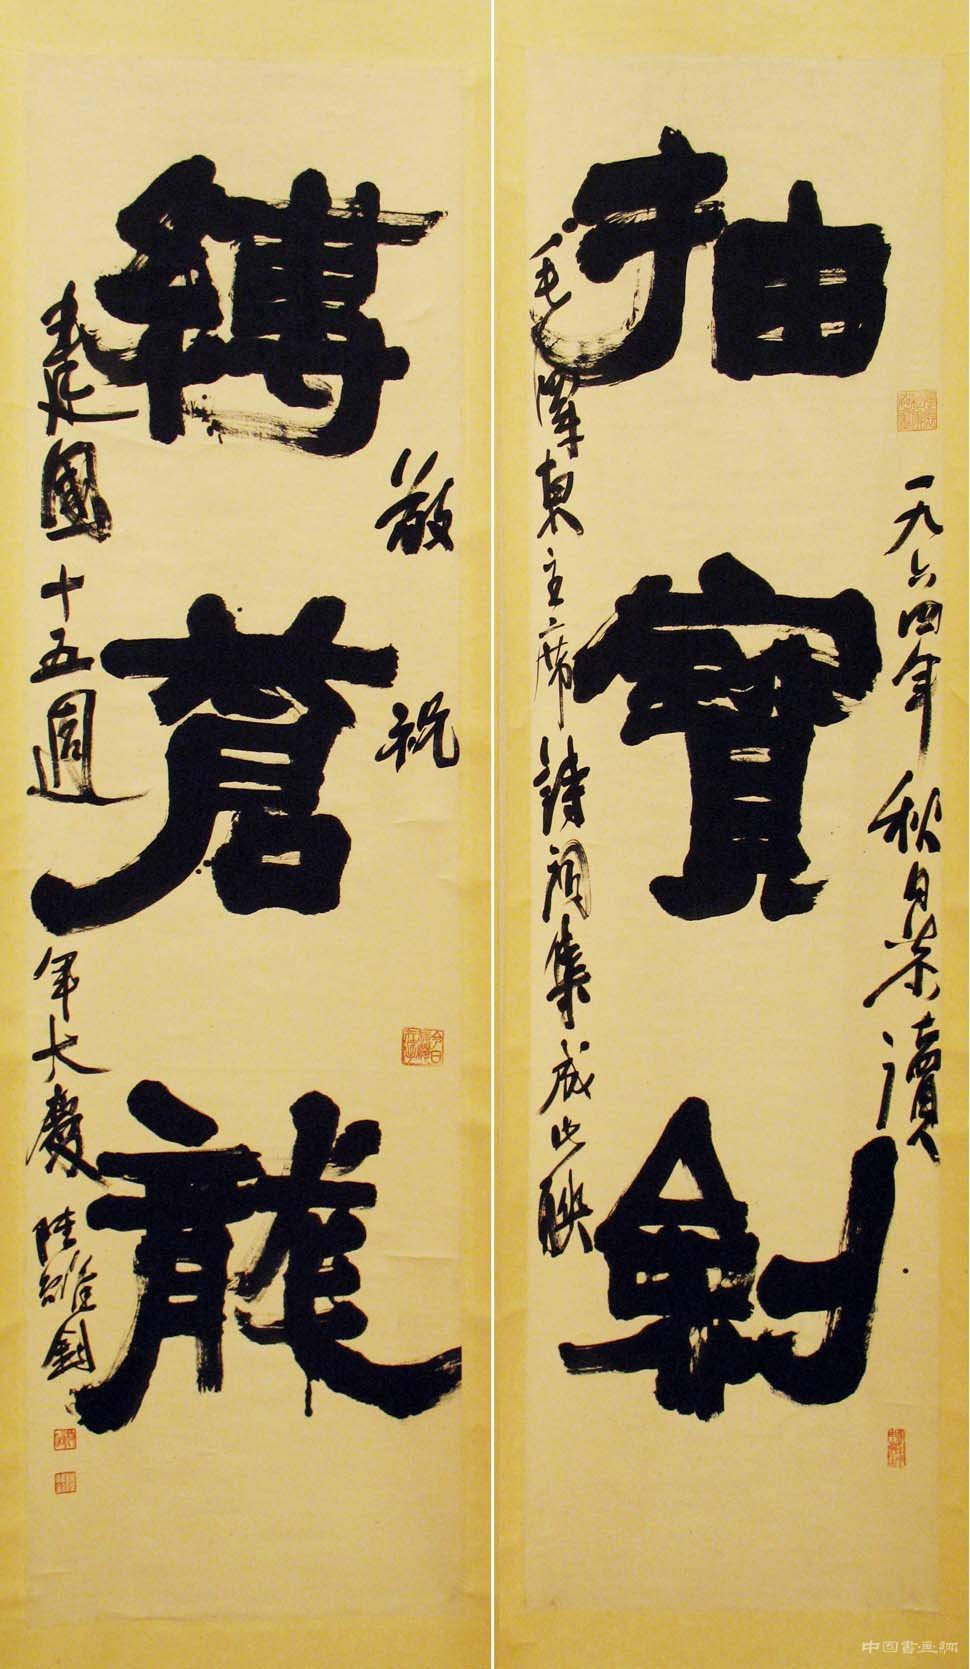 一九六四年秋日恭讀
抽寶劍
毛澤東主席詩詞集成此聯
敬祝
今日長纓在手
縛蒼龍
建國十五週年大慶陸維釗
中国書画網